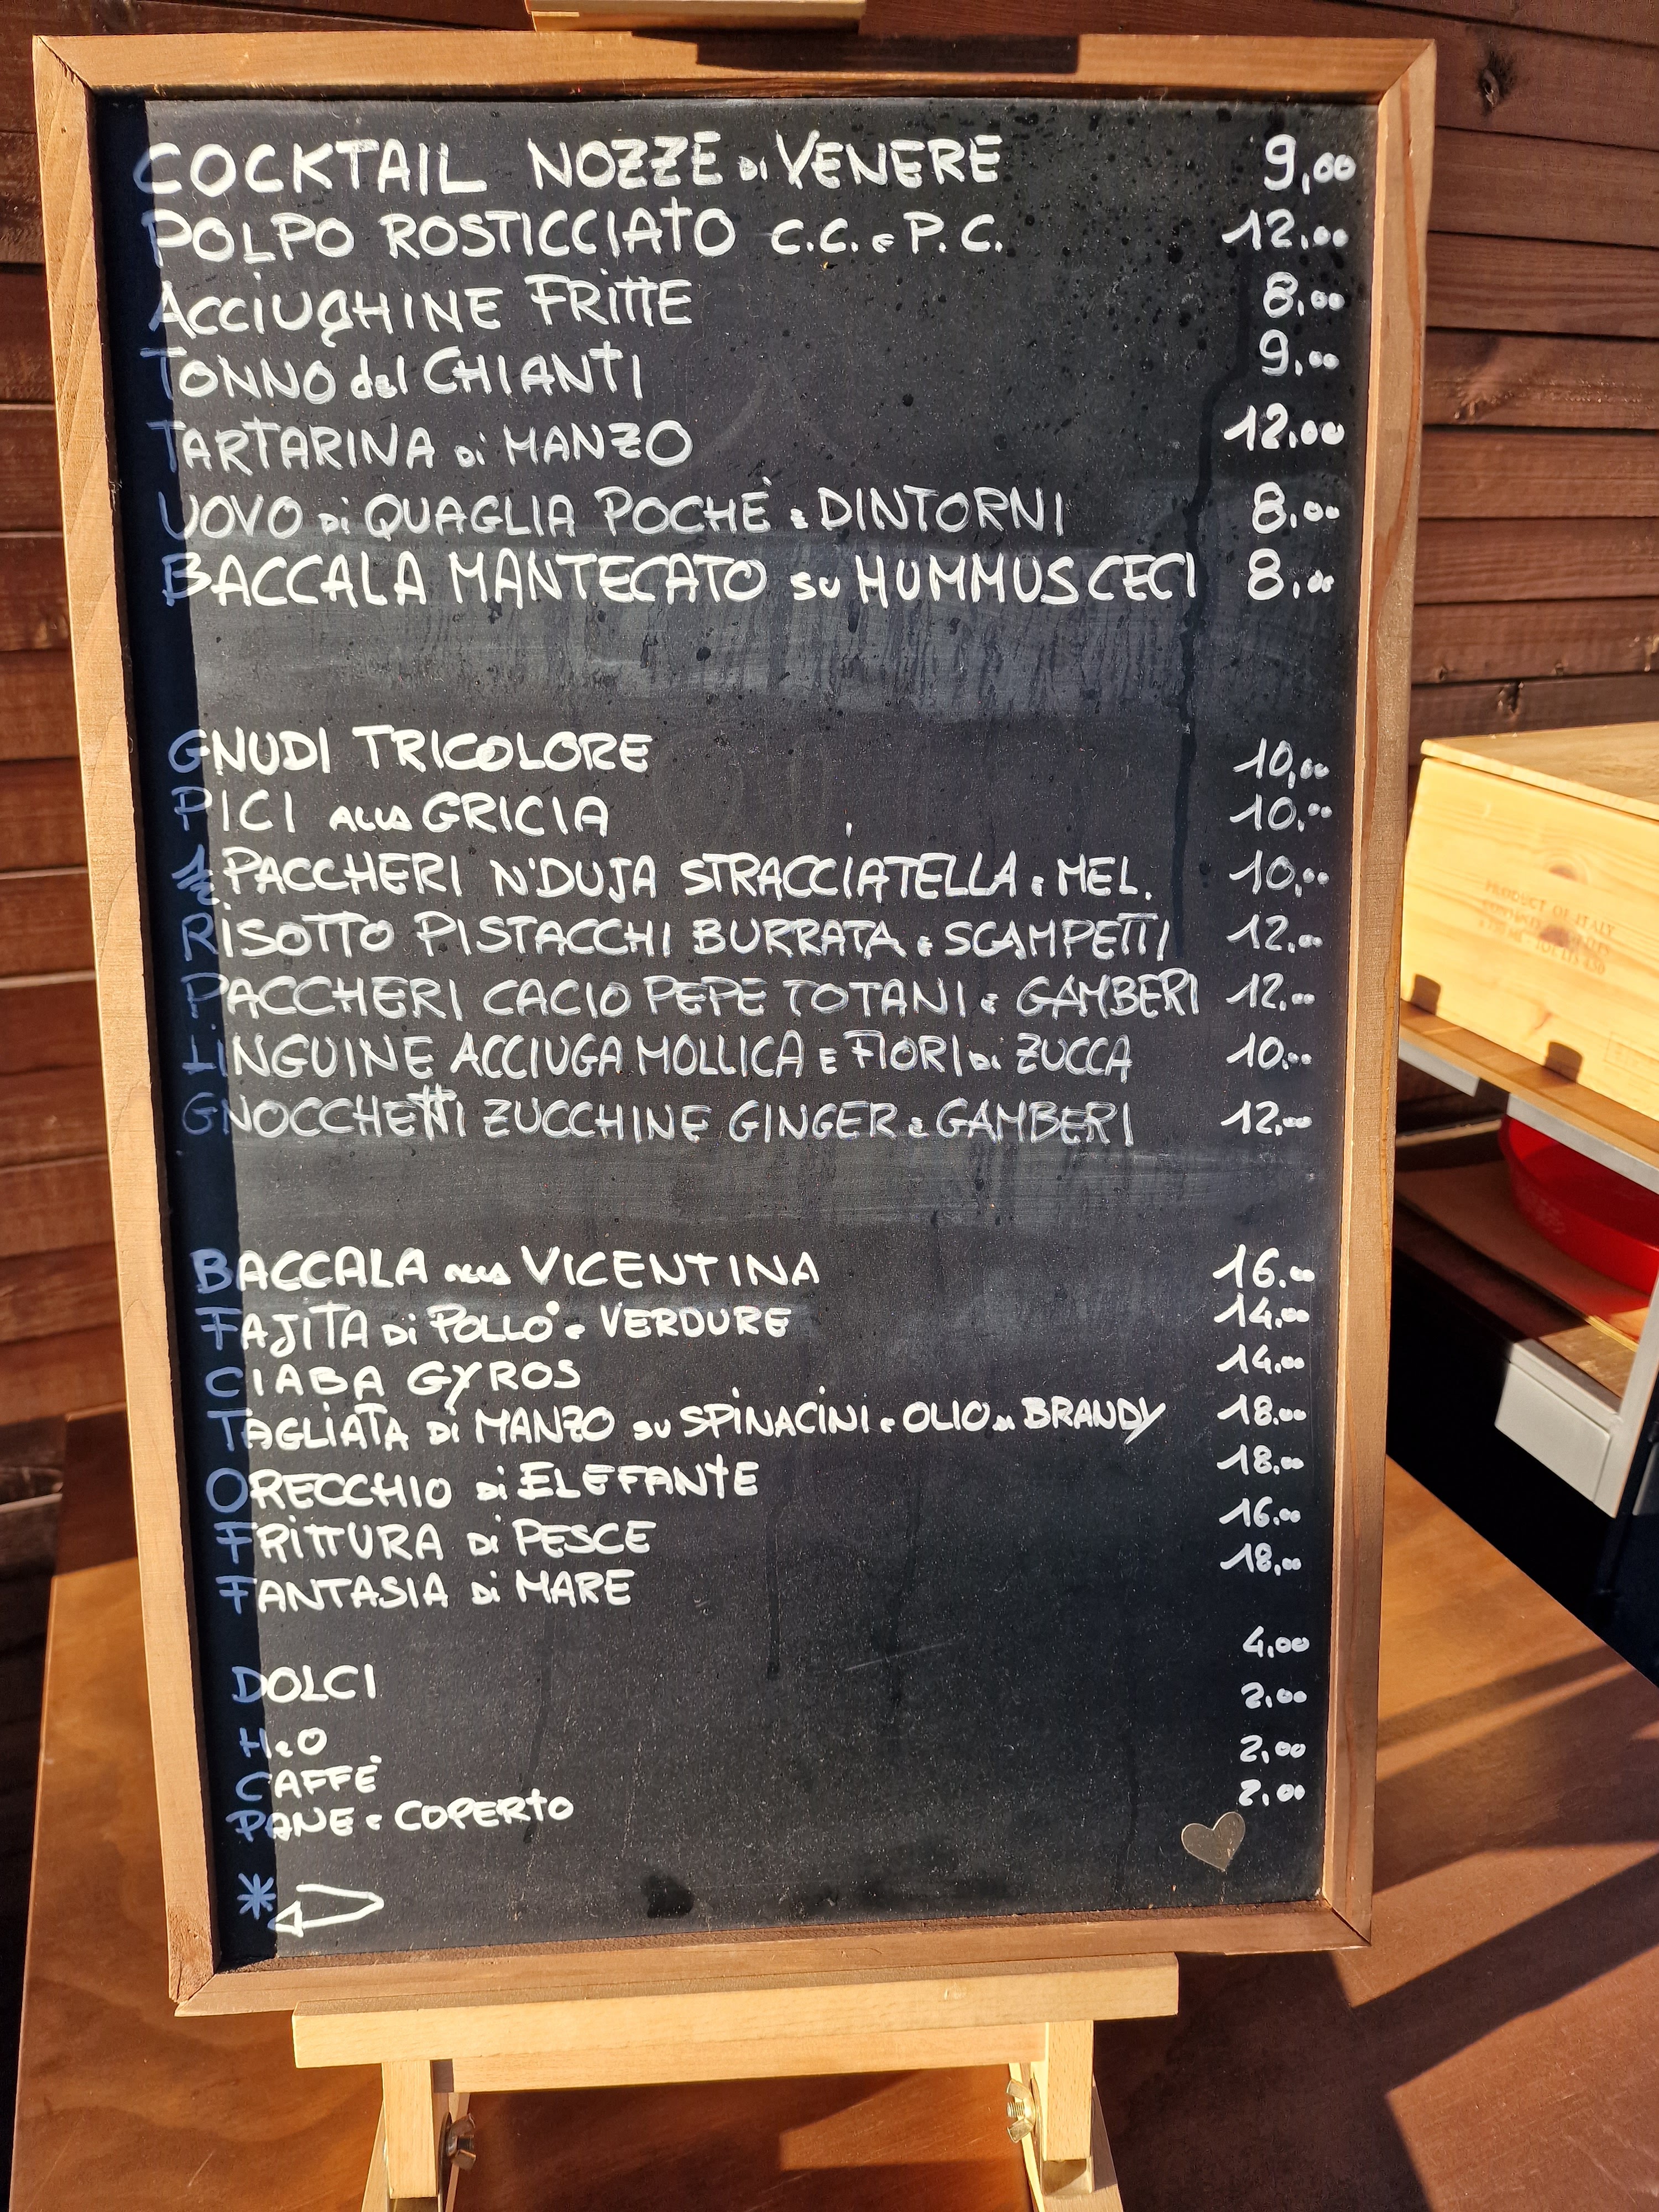 COCKTAIL NOZZE di VENERE 9,00
POLPO ROSTICCIATO C.C. e P.C. 12,00
ACCIUGHINE FRITTE 8,00
TONNO del CHIANTI 9,00
TARTARINA di MANZO 12,00
UOVO di QUAGLIA POCHÉ e DINTORNI 8,00
BACCALA MANTECATO su HUMMUS CECI 8,00
GNUDI TRICOLORE 10,00
PICI ALLA GRICIA 10,00
PACCHERI N'DUJA STRACCIATELLA e MEL. 10,00
RISOTTO PISTACCHI BURRATA e SCAMPETTI 12,00
PACCHERI CACIO PEPE TOTANI e GAMBERI 12,00
LINGUINE ACCIUGA MOLLICA E FIORI di ZUCCA 10,00
GNOCCHETTI ZUCCHINE GINGER e GAMBERI 12,00
BACCALA ALLA VICENTINA 16,00
FAJITA di POLLO e VERDURE 14,00
CIABA GYROS 14,00
TAGLIATA di MANZO su SPINACINI e OLIO al BRANDY 18,00
ORECCHIO di ELEFANTE 18,00
FRITTURA di PESCE 16,00
FANTASIA di MARE 18,00
DOLCI 4,00
H2O 2,00
CAFFÉ 2,00
PANE e COPERTO 2,00
*
PRODUCT OF ITALY